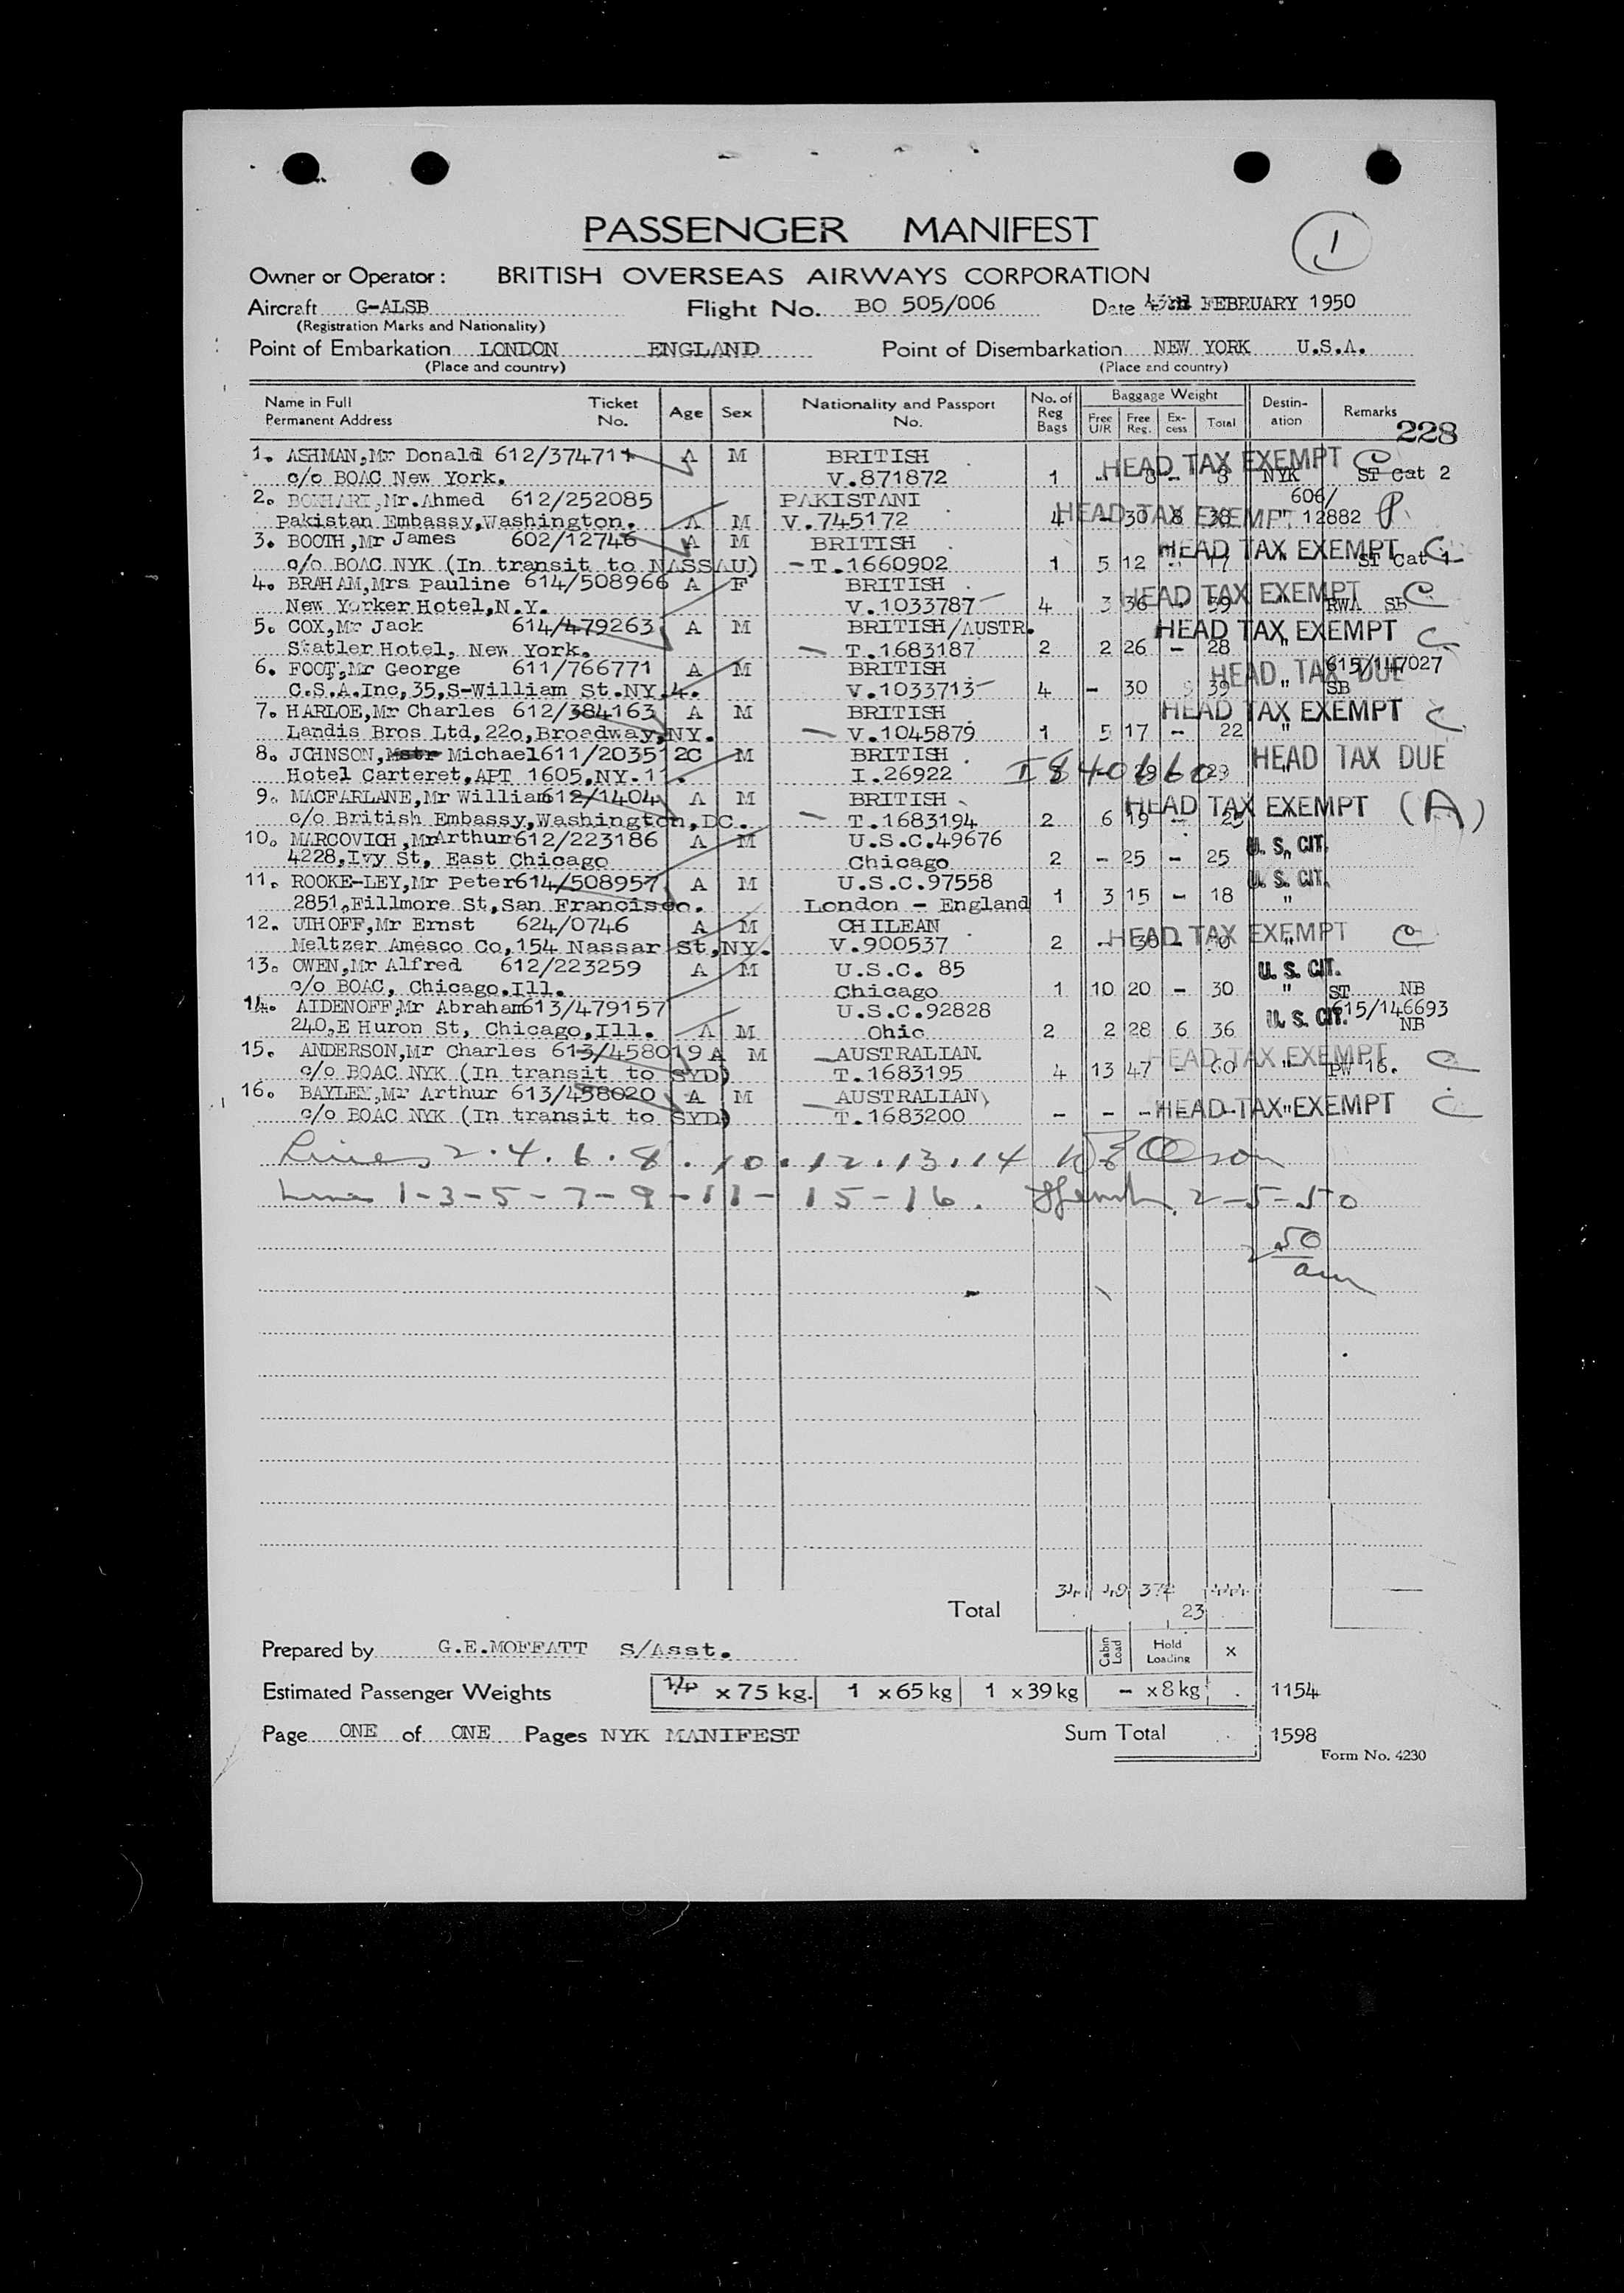 1
PASSENGER MANIFEST
Owner or Operator: BRITISH OVERSEAS AIRWAYS CORPORATION
Aircraft G-ALSB Flight No. BO 505/006 Date FEBRUARY 1950
(Registration Marks and Nationality)
Point of Embarkation LONDON ENGLAND Point of Disembarkation NEW YORK U.S.A.
(Place and country) (Place and country)
Name in Full Permanent Address Ticket No. Age Sex Nationality and Passport No. No. of Reg Bags Baggage Weight Free U/R Free Reg. Ex-cess Total Destin-ation Remarks
228
1. ASHMAN,Mr Donald 612/374711 A M BRITISH HEAD TAX EXEMPT C
c/o BOAC New York. V.871872 1 - 8 - 8 NYK ST Cat 2
2. BOKHARI,Mr.Ahmed 612/252085 PAKISTANI 606/
Pakistan Embassy,Washington. A M V.745172 4 - 30 8 38 " 12882 P
HEAD TAX EXEMPT
3. BOOTH,Mr James 602/12746 A M BRITISH HEAD TAX EXEMPT C
c/o BOAC NYK (In transit to NASSAU) -T.1660902 1 5 12 - 17 ST Cat 1
4. BRAHAM,Mrs Pauline 614/508966 A F BRITISH HEAD TAX EXEMPT C
New Yorker Hotel,N.Y. V.1033787 4 3 36 - 39 " RWA SB
5. COX,Mr Jack 614/479263 A M BRITISH/AUSTR. HEAD TAX EXEMPT C
Statler Hotel, New York. T.1683187 2 2 26 - 28 "
6. FOOT,Mr George 611/766771 A M BRITISH HEAD TAX DUE 615/147027
C.S.A.Inc,35,S-William St.NY.4. V.1033713 4 - 30 9 39 " SB
7. HARLOE,Mr Charles 612/384163 A M BRITISH HEAD TAX EXEMPT C
Landis Bros Ltd,220,Broadway,NY. V.1045879 1 5 17 - 22 "
8. JOHNSON,Mstr Michael611/203512C M BRITISH HEAD TAX DUE
Hotel Carteret,APT 1605,NY.11. I.26922 I840660 29 29
9. MACFARLANE,Mr William612/1404 A M BRITISH HEAD TAX EXEMPT (A)
c/o British Embassy,Washington,DC. T.1683194 2 6 19 - 25
10. MARCOVICH,MrArthur612/223186 A M U.S.C.49676 U. S. CIT.
4228,Ivy St, East Chicago Chicago 2 - 25 - 25 "
11. ROOKE-LEY,Mr Peter614/508957 A M U.S.C.97558 U. S. CIT.
2851,Fillmore St,San Francisco. London - England 1 3 15 - 18 "
12. UTHOFF,Mr Ernst 624/0746 A M CHILEAN HEAD TAX EXEMPT C
Meltzer Amesco Co,154 Nassar St,NY. V.900537 2 - 30 - 30 "
13. OWEN,Mr Alfred 612/223259 A M U.S.C. 85 U. S. CIT.
c/o BOAC, Chicago.Ill. Chicago 1 10 20 - 30 " ST NB
14. AIDENOFF,Mr Abraham613/479157 U.S.C.92828 U. S. CIT. 615/146693
240,E Huron St, Chicago,Ill. A M Ohio 2 2 28 6 36 NB
15. ANDERSON,Mr Charles 613/458019 A M AUSTRALIAN. HEAD TAX EXEMPT C
c/o BOAC NYK (In transit to SYD) T.1683195 4 13 47 - 60 " PW 16.
16. BAYLEY,Mr Arthur 613/458020 A M AUSTRALIAN HEAD TAX EXEMPT C
c/o BOAC NYK (In transit to SYD) T.1683200 - - - - - "
Lines 2.4.6.8.10.12.13.14
Lines 1-3-5-7-9-11-15-16. 2-5-50
2 50
am
34 49 372 444
Total 23
Cabin Load Hold Loading X
Prepared by G.E.MOFFATT S/Asst.
Estimated Passenger Weights 14 x 75 kg. 1 x 65 kg 1 x 39 kg - x 8 kg 1154
Page ONE of ONE Pages NYK MANIFEST Sum Total 1598
Form No. 4230